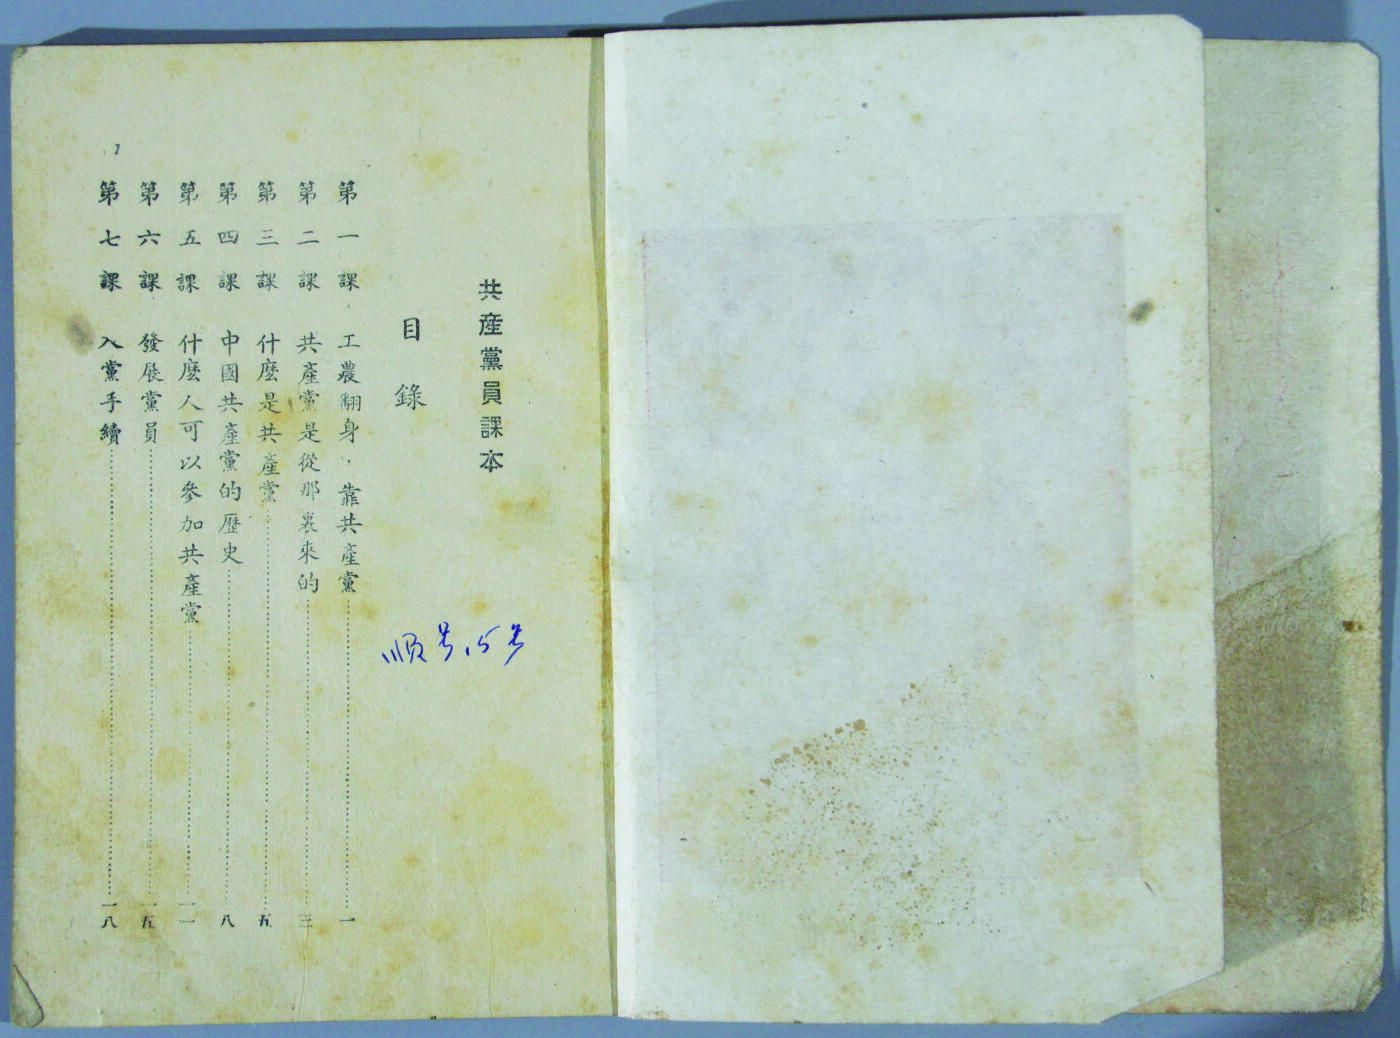 共產黨員課本
目錄
第一課 工農翻身，靠共產黨……一
第二課 共產黨是從那裏來的……三
第三課 什麼是共產黨……五
第四課 中國共產黨的歷史……八
第五課 什麼人可以參加共產黨……一一
第六課 發展黨員……一五
第七課 入黨手續……一八
顺号15号